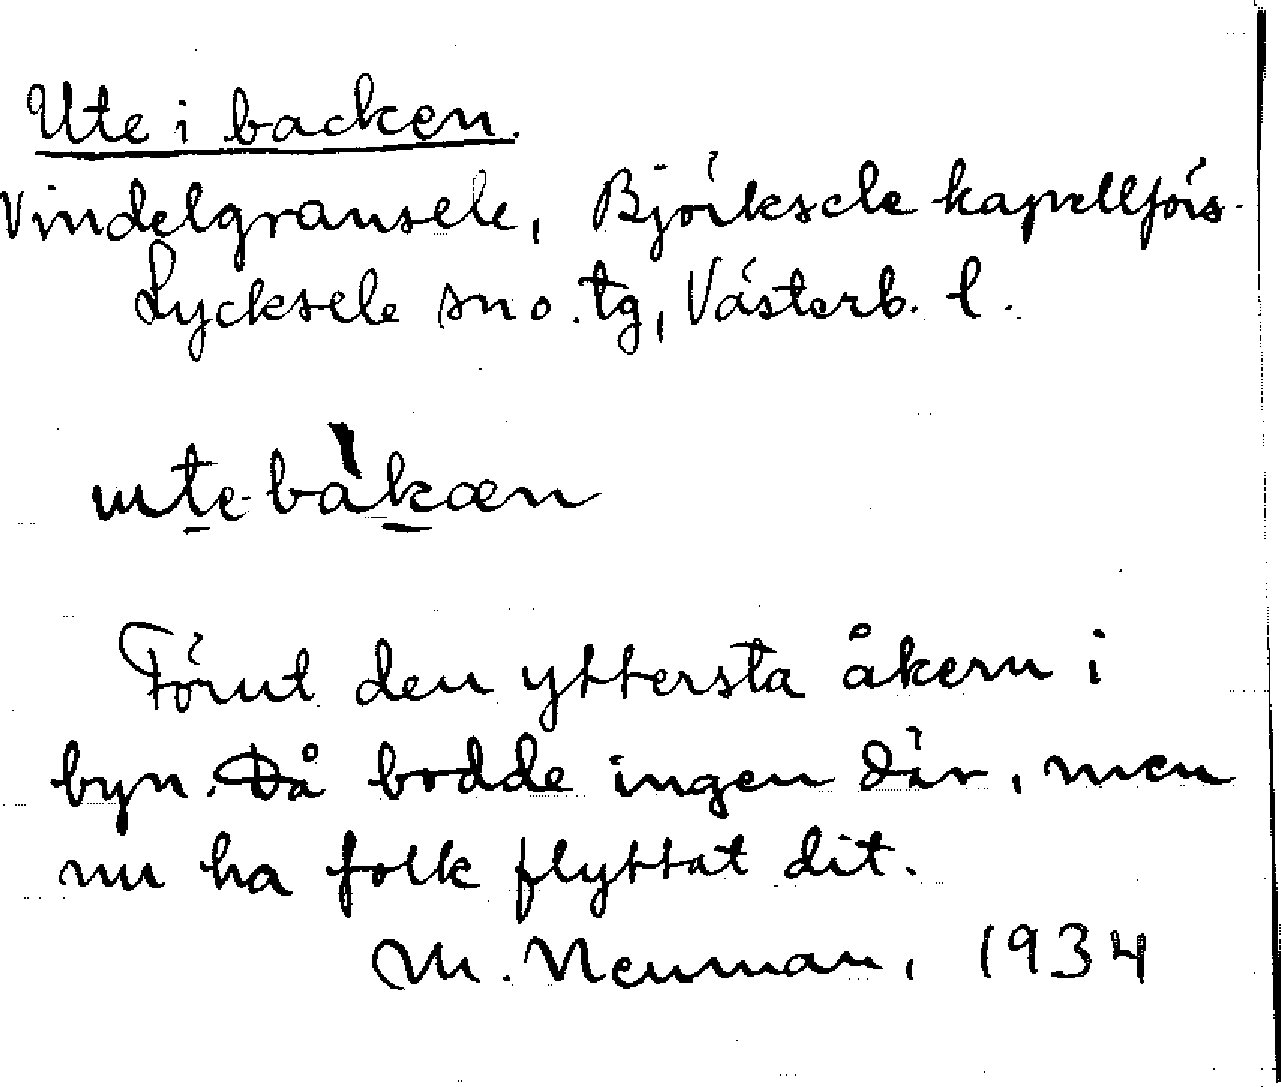 Ute i backen.
Vindelgransele, Björksele kapellförs.
Lycksele sno. tg, Västerb. l.
ute-bàkæn
Förut den yttersta åkern i
byn. Då bodde ingen där, men
nu ha folk flyttat dit.
M. Neuman, 1934